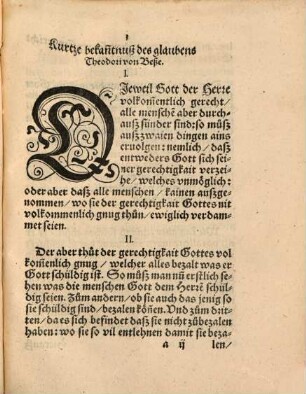 1
Kurtze bekañtnuß des glaubens
Theodori von Beße.
I.
DJeweil Gott der Herre
volkom̃entlich gerecht/
alle menschẽ aber durch-
auß sünder sind: so můß
auß zwaien dingen ains
eruolgen: nemlich/ daß
entweders Gott sich sei-
ner gerechtigkait verzei-
he/ welches vnmöglich:
oder aber daß alle menschen/ kainen außge-
nommen/ wo sie der gerechtigkait Gottes nit
volkommenlich gnug thůn/ ewiglich verdam-
met seien.
II.
Der aber thůt der gerechtigkait Gottes vol
kom̃enlich gnug/ welcher alles bezalt was er
Gott schüldig ist. So můß man nũ erstlich se-
hen was die menschen Gott dem Herrẽ schül-
dig seien. Zům andern/ ob sie auch das jenig so
sie schüldig sind/ bezalen kön̄en. Vnd zům drit-
ten/ da es sich befindet daß sie nicht zůbezalen
haben: wo sie so vil entlehnen damit sie beza-
a ij len/